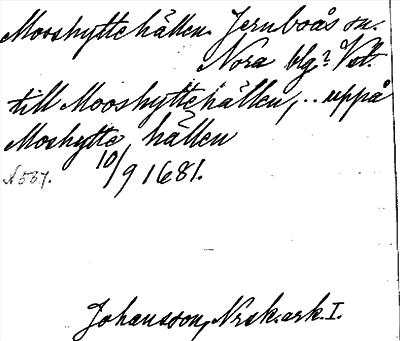 Mooshyttehällen. Jernboås sn.
Nora blg? Vstl.
till Mooshyttehällen, .. uppå
Moshytte hällen
10/9 1681.
N 537.
Johansson, Nrsk. ark. I.